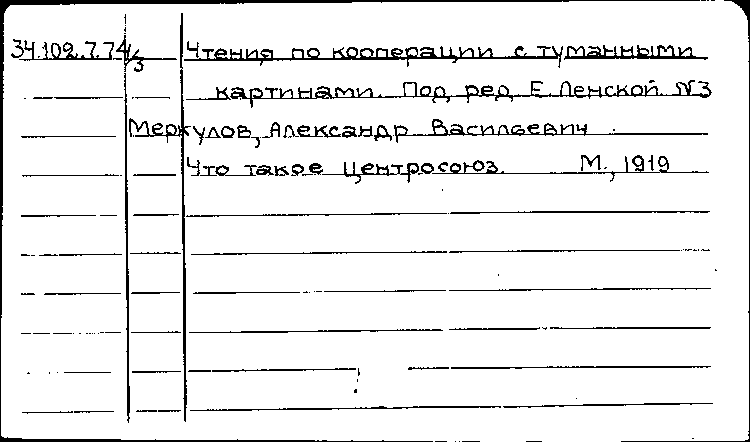 34.102.7.74/3 Чтения по кооперации с туманными
картинами. Под ред. Е. Ленской. №3
Меркулов, Александр Васильевич.
Что такое Центросоюз. М., 1919